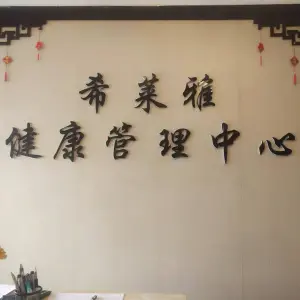 希莱雅
健康管理中心